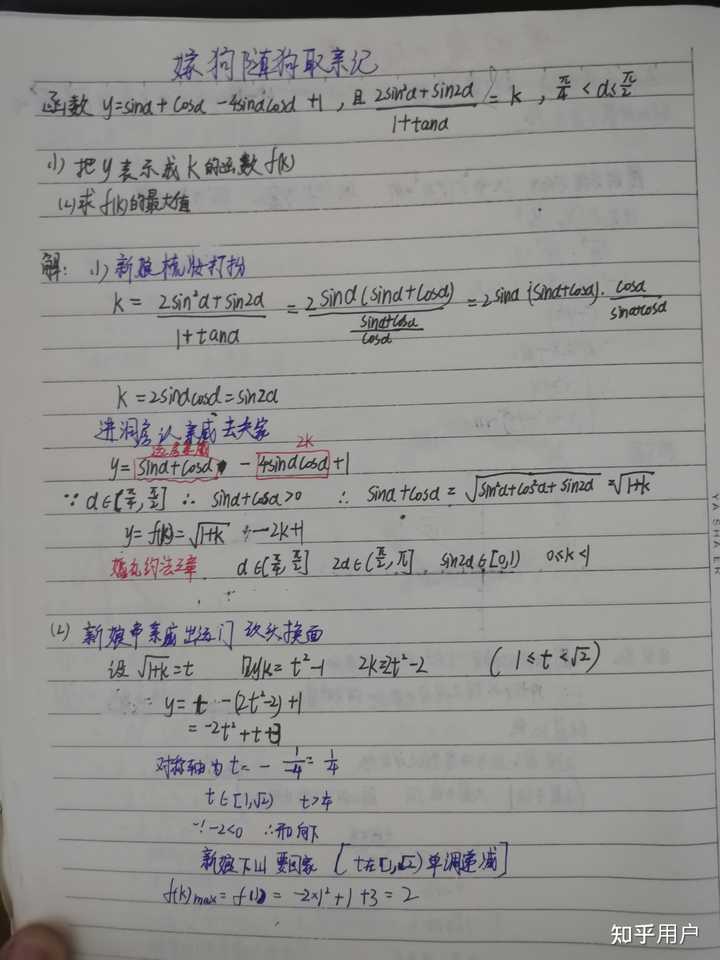 嫁狗随狗取亲记
函数 y=sinα+cosα-4sinαcosα+1, 且 (2sin²α+sin2α)/(1+tanα) = k, π/4 < α ≤ π/2
(1) 把y表示成K的函数f(k)
(2)求f(k)的最大值
解: (1) 新娘梳妆打扮
K = (2sin²α+sin2α)/(1+tanα) = 2sinα(sinα+cosα)/((sinα+cosα)/cosα) = 2sinα·(sinα+cosα)·cosα/(sinα+cosα)
K=2sinαcosα=sin2α
进洞房认亲戚去夫家
2K
y= sinα+cosα - 4sinαcosα+1
∵ α∈(π/4, π/2] ∴ sinα+cosα>0 ∴ sinα+cosα = √(sin²α+cos²α+sin2α) = √(1+k)
y=f(k)=√(1+k) -2k+1
婚礼约法三章 α∈(π/4, π/2] 2α∈(π/2, π] sin2α∈[0,1) 0≤k<1
(2) 新娘串亲戚出远门 改头换面
设 √(1+k)=t 则k=t²-1 2k=2t²-2 (1≤t<√2)
∴ y= t -(2t²-2)+1
= -2t²+t+3
对称轴为t= - 1/-4 = 1/4
t∈[1,√2) t>1/4
∵-2<0 ∴开口向下
新娘下山要回家 [t在[1,√2)单调递减]
f(k)max=f(1) = -2×1²+1+3=2
YASHAER
知乎用户